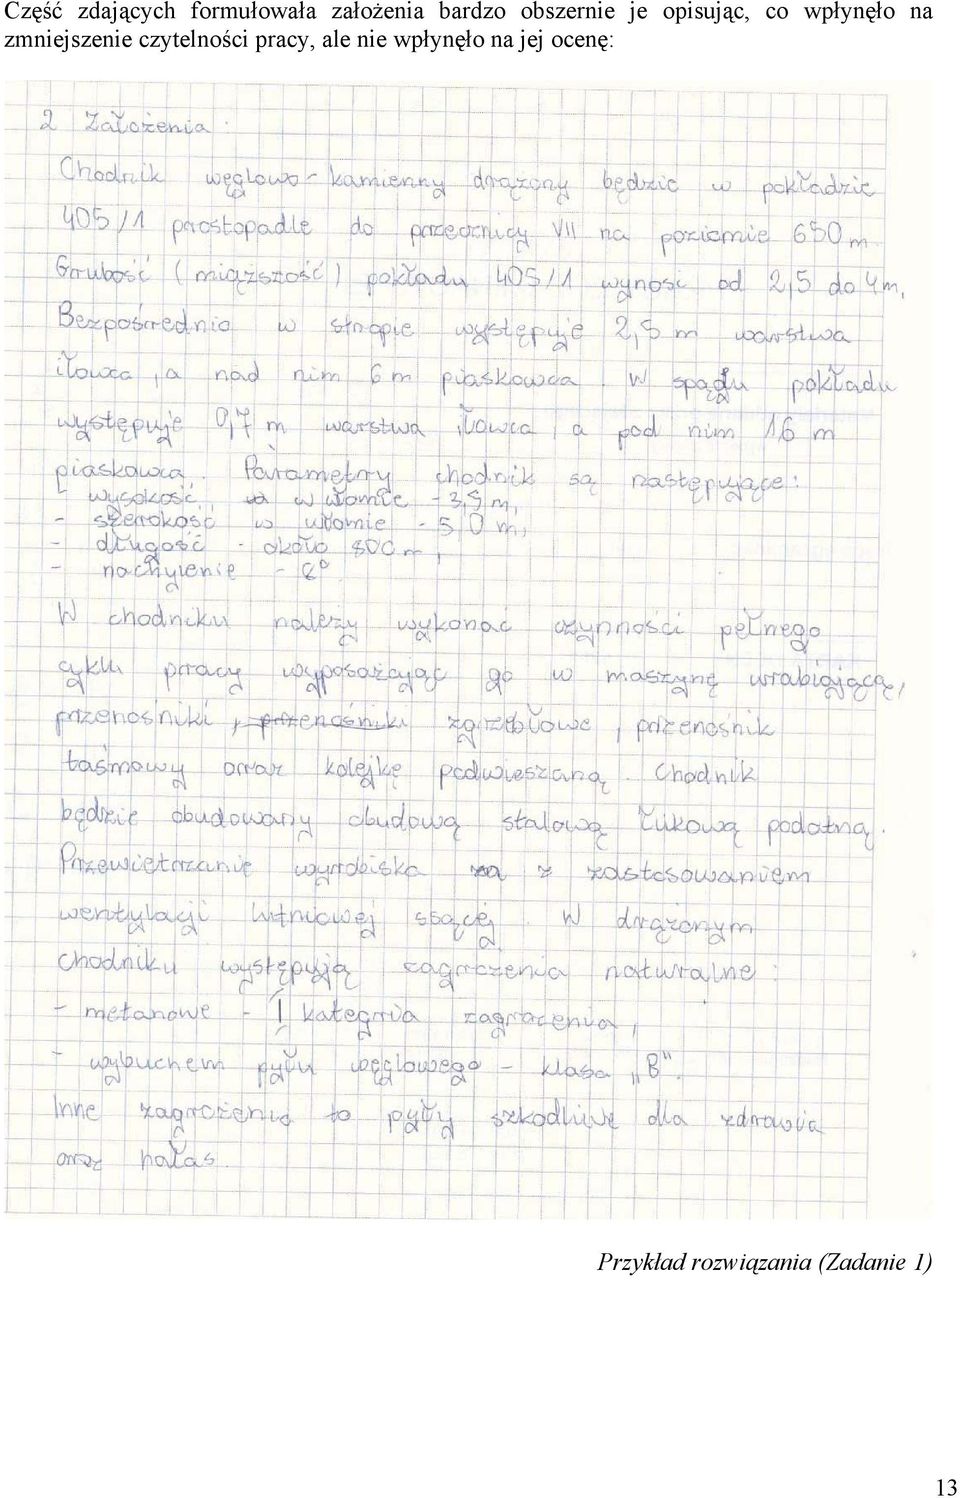 Część zdających formułowała założenia bardzo obszernie je opisując, co wpłynęło na
zmniejszenie czytelności pracy, ale nie wpłynęło na jej ocenę:
2 Założenia:
Chodnik węglowo-kamienny drążony będzie w pokładzie
405/1 prostopadle do przecznicy VII na poziomie 650 m.
Grubość (miąższość) pokładu 405/1 wynosi od 2,5 do 4m.
Bezpośrednio w stropie występuje 2,5 m warstwa
iłowca, a nad nim 6 m piaskowca. W spągu pokładu
występuje 0,7 m warstwa iłowca, a pod nim 16 m
piaskowca. Parametry chodnik są następujące:
- wysokość w włomie - 3,5 m,
- szerokość w włomie - 5,0 m,
- długość - około 800 m,
- nachylenie - 6°
W chodniku należy wykonać czynności pełnego
cyklu pracy wyposażając go w maszynę urabiającą,
przenośniki, przenośniki zgrzebłowe, przenośnik
taśmowy oraz kolejkę podwieszaną. Chodnik
będzie obudowany obudową stalową łukową podatną.
Przewietrzanie wyrobiska za z zastosowaniem
wentylacji lutniowej ssącej. W drążonym
chodniku występują zagrożenia naturalne:
- metanowe - I kategoria zagrożenia,
- wybuchem pyłu węglowego - klasa „B".
Inne zagrożenia to pyły szkodliwe dla zdrowia
oraz hałas.
Przykład rozwiązania (Zadanie 1)
13